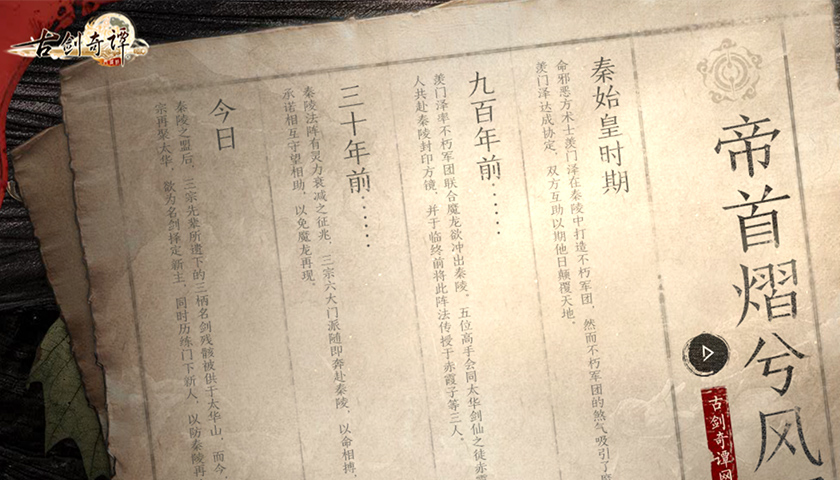 古剑奇谭
帝首熠兮风
古剑奇谭网
秦始皇时期
命邪恶方术士羡门泽在秦陵中打造不朽军团，然而不朽军团的煞气吸引了
羡门泽达成协定，双方互助以期他日颠覆天地。
九百年前……
羡门泽率不朽军团联合魔龙欲冲出秦陵，五位高手会同太华剑仙之徒赤霞
人共赴秦陵封印方镜，并于临终前将此阵法传授于赤霞子等三人。
三十年前……
秦陵法阵有灵力衰减之征兆，三宗六大门派随即奔赴秦陵，以命相搏，
承诺相互守望相助，以免魔龙再现。
今日
秦陵之盟后，三宗先辈所遗下的三柄名剑残骸被供于太华山，而今，
宗再聚太华，欲为名剑择定新主，同时历练门下新人，以防秦陵再